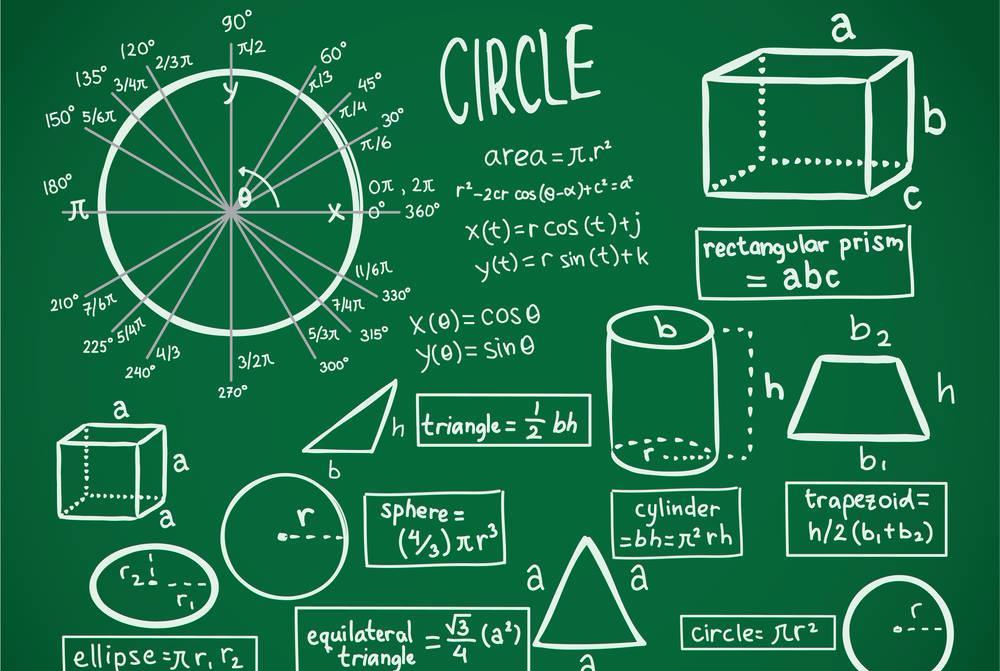 90°
120°
2/3π
π/2
60°
135°
3/4π
π/3
45°
150°
5/6π
y
π/4
30°
π/6
180°
π
θ
x
0π, 2π
0°
360°
210°
7/6π
11/6π
330°
225°
5/4π
7/4π
315°
240°
4/3
3/2π
5/3π
300°
270°
CIRCLE
area = π.r²
r²-2cr cos(θ-α)+c²=a²
x(t)=r cos(t)+j
y(t)=r sin(t)+k
X(θ)=cosθ
y(θ)=sinθ
a
b
c
rectangular prism
= abc
a
a
a
h
b
triangle = 1/2 bh
b
h
r
b₂
h
b₁
r
sphere =
(4/3)πr³
cylinder
=bh=π²rh
trapezoid=
h/2(b₁+b₂)
r₂
r₁
ellipse=πr₁r₂
equilateral
triangle
= √3/4 (a²)
a
a
a
circle= πr²
r